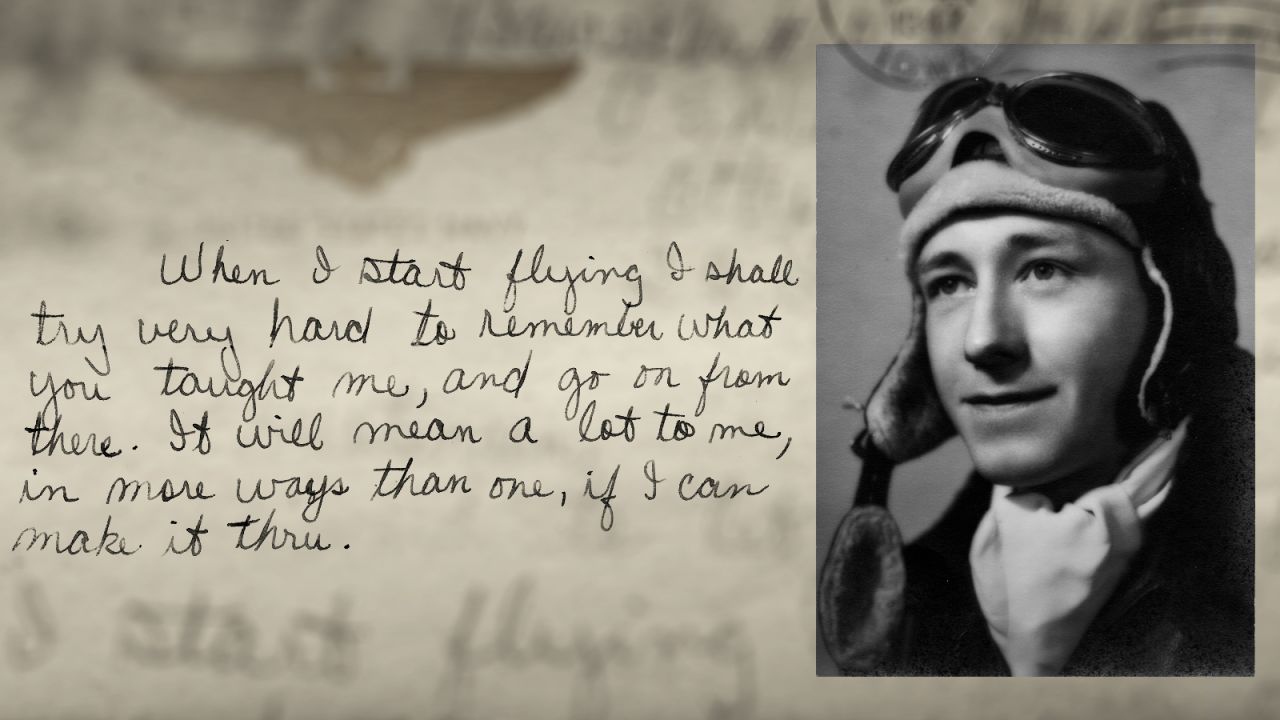 When I start flying I shall
try very hard to remember what
you taught me, and go on from
there. It will mean a lot to me,
in more ways than one, if I can
make it thru.
I start flying